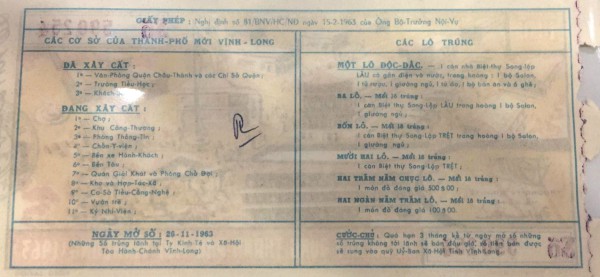 GIẤY PHÉP : Nghị định số 81/BNV/HC/NĐ ngày 25-2-1963 của Ông Bộ-Trưởng Nội-Vụ
CÁC CƠ SỞ CỦA THÀNH-PHỐ MỚI VĨNH-LONG
ĐÃ XÂY CẤT :
1º — Văn-Phòng Quận Châu-Thành và các Chi Sở Quận ;
2º — Trường Tiểu-Học ;
3º — Khách-sạn
ĐANG XÂY CẤT :
1º — Chợ ;
2º — Khu Công-Thương ;
3º — Phòng Thông-Tin ;
4º — Chẩn-Y-viện ;
5º — Bến xe Hành-Khách ;
6º — Bến Tàu ;
7º — Quán Giải Khát và Phòng Chờ Đợi ;
8º — Kho và Hợp-Tác-Xã ;
9º — Cơ-Sở Tiểu-Công-Nghệ ;
10º — Vườn Hề ;
11º — Ký Nhi-Viện ;
NGÀY MỞ SỐ : 26-11-1963
(Những Số trúng lãnh tại Ty Kinh-Tế và Xã-Hội
Tòa Hành-Chánh Vĩnh-Long)
CÁC LÔ TRÚNG
MỘT LÔ ĐỘC-ĐẮC. — 1 căn nhà Biệt thự Song-lập
LẦU có gắn điện và nước, trang hoàng : 1 bộ Salon,
1 tủ rượu, 1 giường ngủ, 1 tủ áo, 1 bộ bàn ăn và 6 ghế ;
BA LÔ. — Mỗi lô trúng :
1 căn Biệt thự Song-Lập LẦU trang hoàng 1 bộ Salon,
1 giường ngủ ;
BỐN LÔ. — Mỗi lô trúng :
1 căn Biệt thự Song-Lập TRỆT trang hoàng 1 bộ Salon,
1 giường ngủ ;
MƯỜI HAI LÔ. — Mỗi lô trúng :
1 căn Biệt thự Song-Lập TRỆT ;
HAI TRĂM NĂM CHỤC LÔ. — Mỗi lô trúng :
1 món đồ đáng giá 500$00 ;
HAI NGÀN NĂM TRĂM LÔ. — Mỗi lô trúng :
1 món đồ đáng giá 100$00.
CƯỚC-CHÚ : Quá hạn 3 tháng kể từ ngày mở số những
số trúng không tới lãnh sẽ bán đấu giá, số tiền bán được
sẽ sung vào quỹ Uỷ-Ban Xã-Hội Tỉnh Vĩnh-Long.